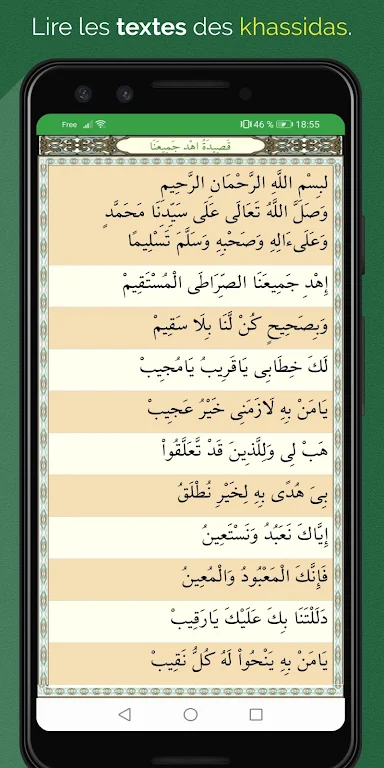 Lire les textes des khassidas.
Free 46 % 18:55
قَصِيدَةُ اهْدِ جَمِيعَنَا
لبِسْمِ اللَّهِ الرَّحْمَانِ الرَّحِيمِ
وَصَلَّ اللَّهُ تَعَالَى عَلَى سَيِّدِنَا مَحَمَّدٍ
وَعَلَىءَالِهِ وَصَحْبِهِ وَسَلَّمَ تَسْلِيمًا
إِهْدِ جَمِيعَنَا الصِّرَاطَى الْمُسْتَقِيمْ
وَبِصَحِيحٍ كُنْ لَّنَا بِلَا سَقِيمْ
لَكَ خِطَابِى يَاقَرِيبُ يَامُجِيبْ
يَامَنْ بِهِ لَازَمَنِى خَيْرُ عَجِيبْ
هَبْ لِى وَلِلَّذِينَ قَدْ تَّعَلَّقُواْ
بِىَ هُدًى بِهِ لِخَيْرِ نُطْلَقُ
إِيَّاكَ نَعَبُدُ وَنَسْتَعِينُ
فَإِنَّكَ الْمَعْبُودُ وَالْمُعِينُ
دَلَلْتَنَا بِكَ عَلَيْكَ يَارَقِيبْ
يَامَنْ بِهِ يَنْحُواْ لَهُ كُلُّ نَقِيبْ